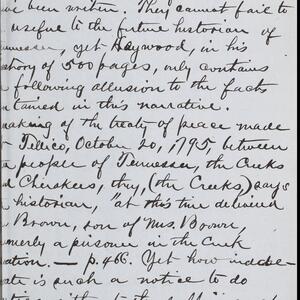 ve been written. They cannot fail to
useful to the future historian of
nnessee, yet Haywood, in his
story of 500 pages, only contains
following allusion to the facts
tained in this narrative.
eaking of the treaty of peace made
Tellico, October 20, 1795 between
people of Tennessee, the Creeks
d Cherokees, they, (the Creeks,) says
historian, "at this time delivered
Brown, son of Mrs. Brown,
merly a prisoner in the Creek
ation. — p. 466. Yet how inade-
ate is such a notice to do